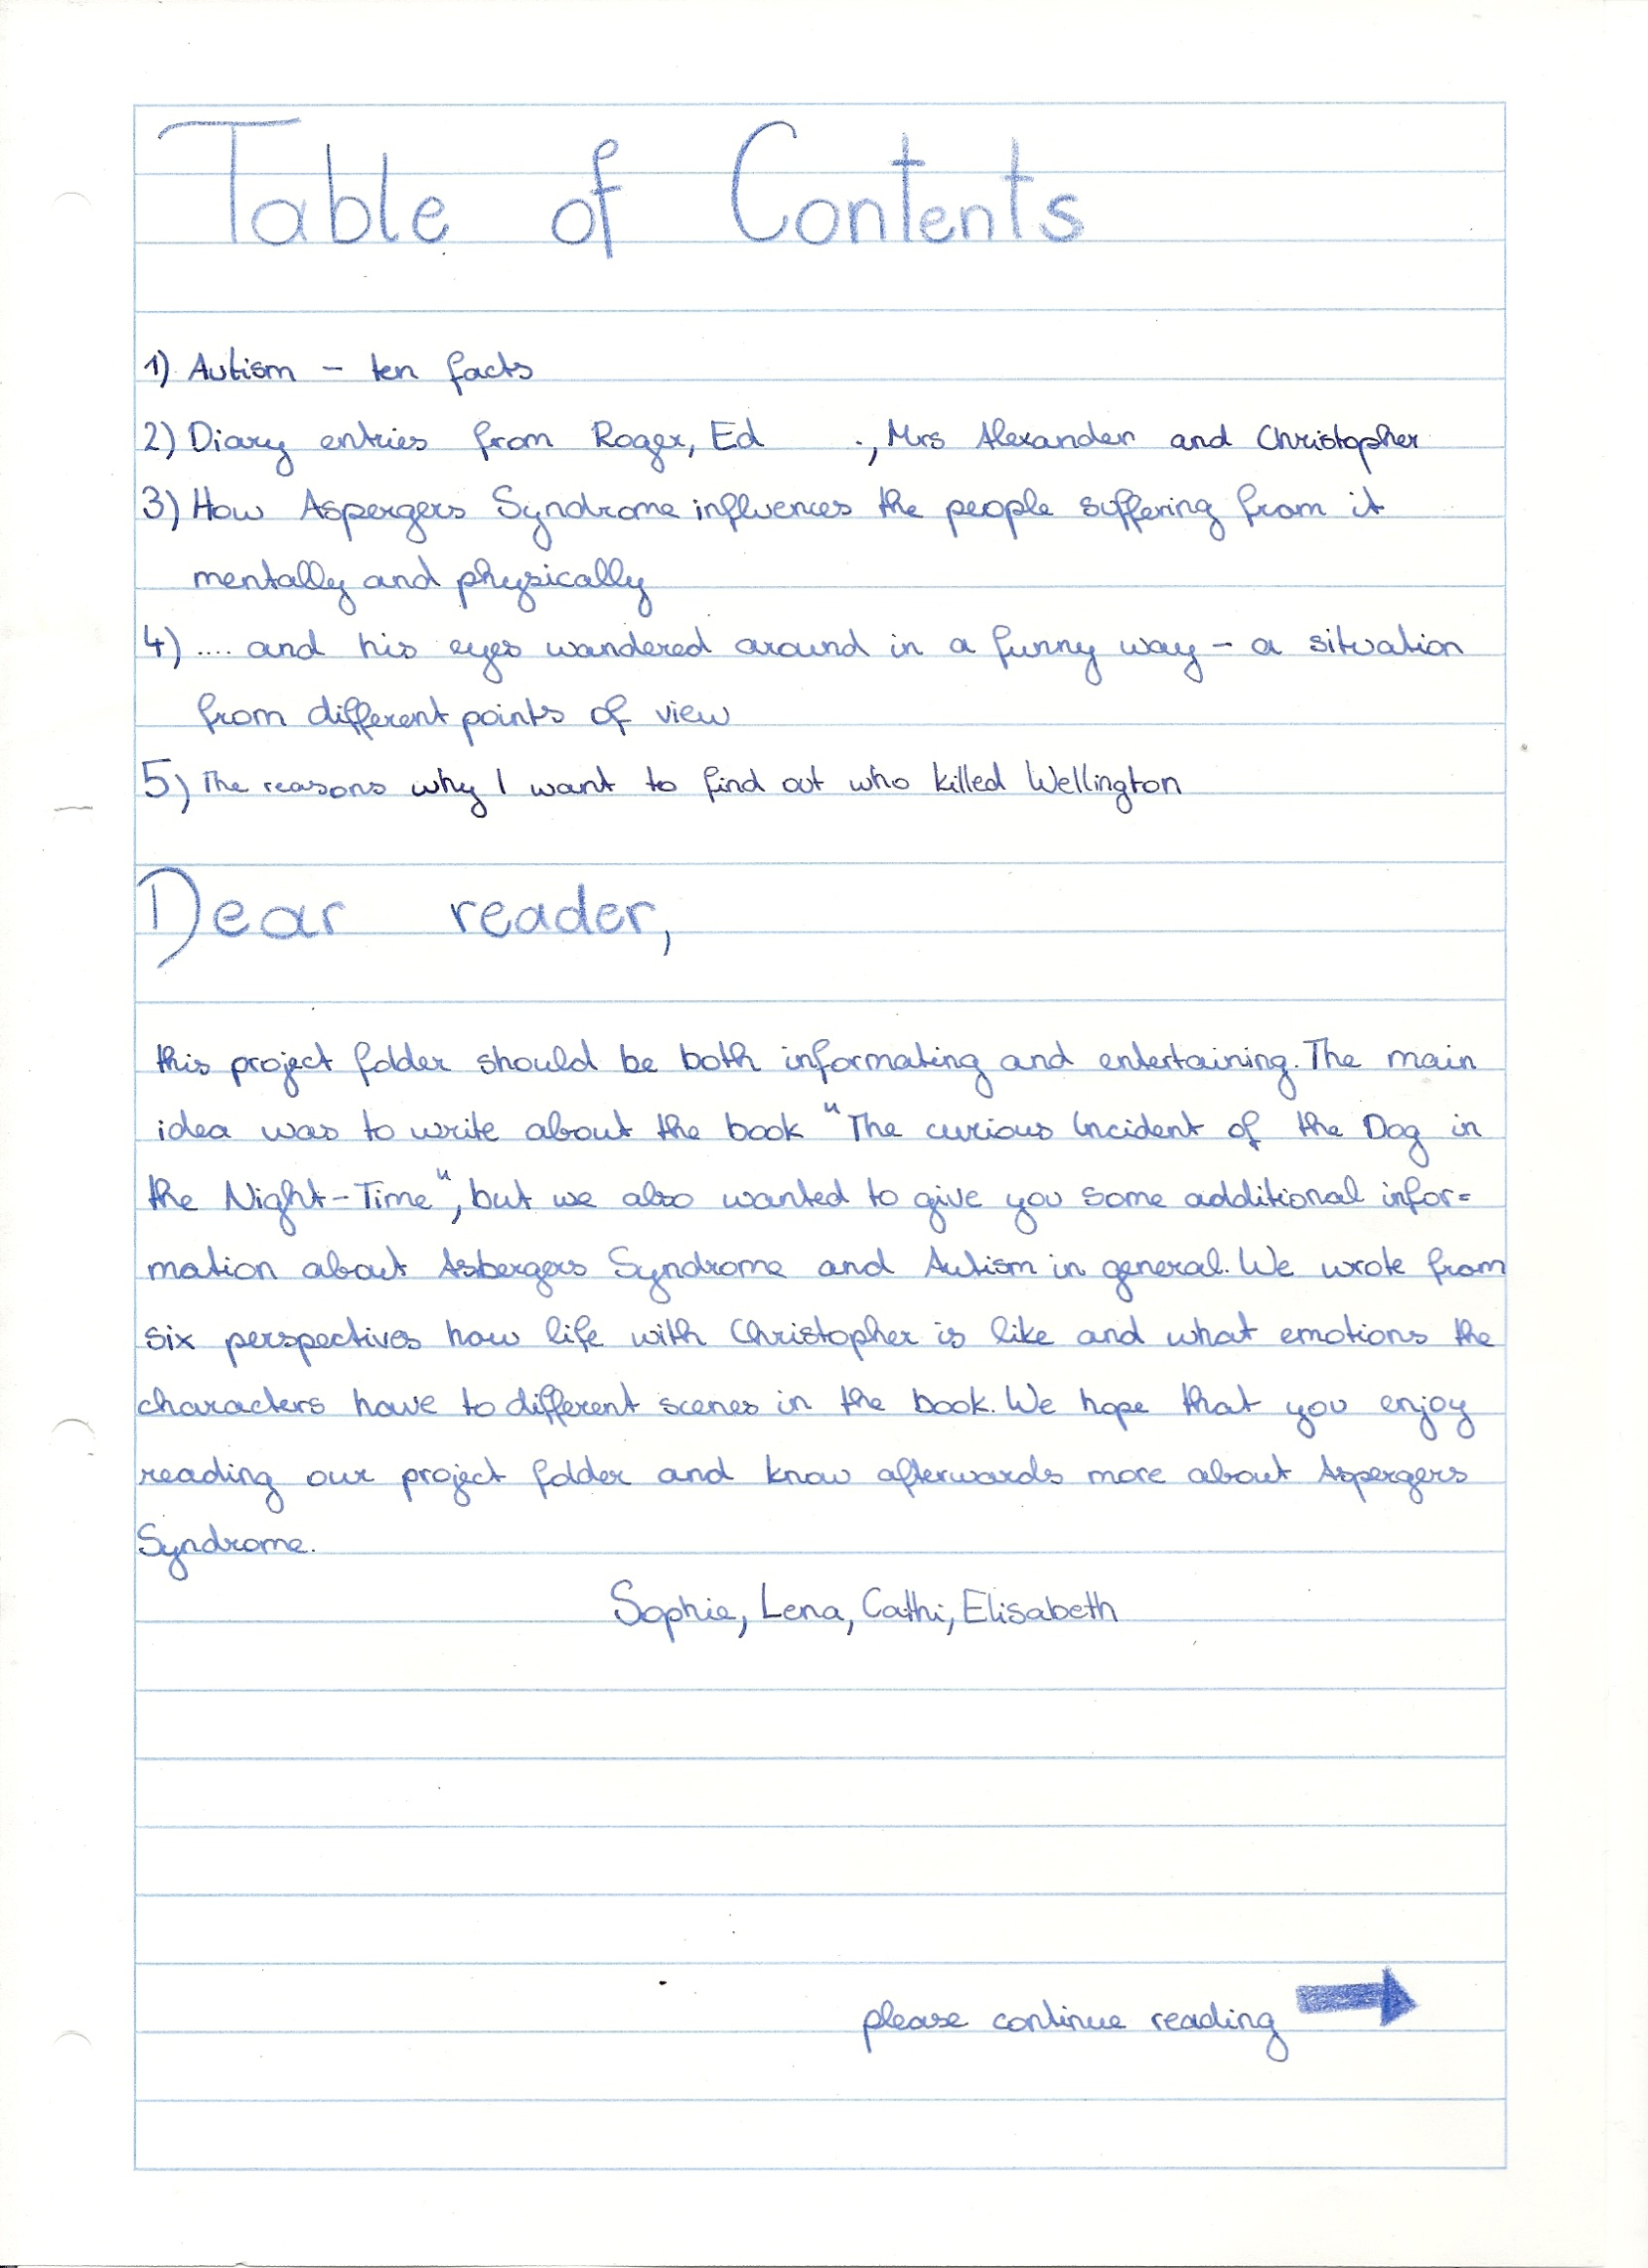 Table of Contents
1) Autism – ten facts
2) Diary entries from Roger, Ed ., Mrs Alexander and Christopher
3) How Aspergers Syndrome influences the people suffering from it
mentally and physically
4) .... and his eyes wandered around in a funny way – a situation
from different points of view
5) The reasons why I want to find out who killed Wellington
Dear reader,
this project folder should be both informating and entertaining. The main
idea was to write about the book "The curious Incident of the Dog in
the Night-Time", but we also wanted to give you some additional infor=
mation about Asbergers Syndrome and Autism in general. We wrote from
six perspectives how life with Christopher is like and what emotions the
characters have to different scenes in the book. We hope that you enjoy
reading our project folder and know afterwards more about Aspergers
Syndrome.
Sophie, Lena, Cathi, Elisabeth
please continue reading